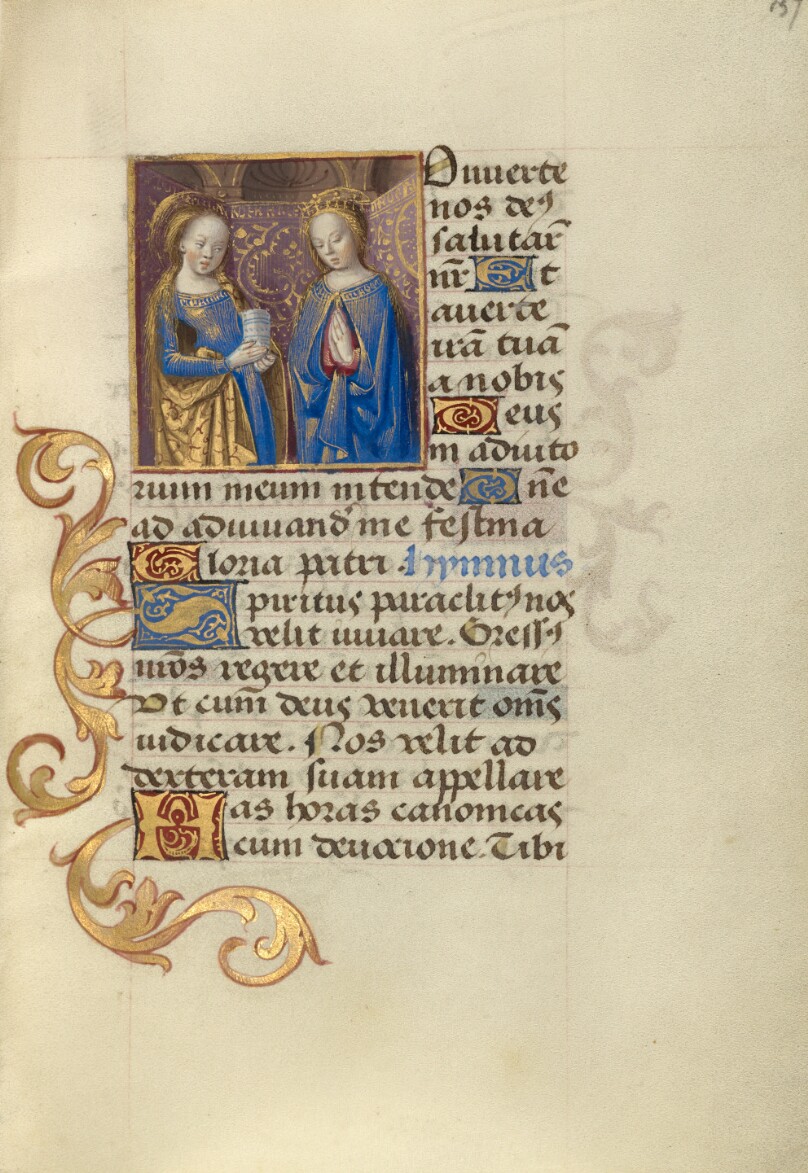 157
Conuerte
nos deꝰ
salutar̄
nr̄ Et
auerte
irā tuā
a nobis
Deus
in adiuto
rium meum intende Dn̄e
ad adiuuand̓ me festina
Gloria patri . hymnus
Spiritus paraclitꝰ nos
velit iuuare . Gressꝰ
nr̄os regere et illuminare
Vt cum̄ deus venerit om̄s
iudicare . Nos velit ad
dexteram suam appellare
Has horas canonicas
cum deuocione . Tibi